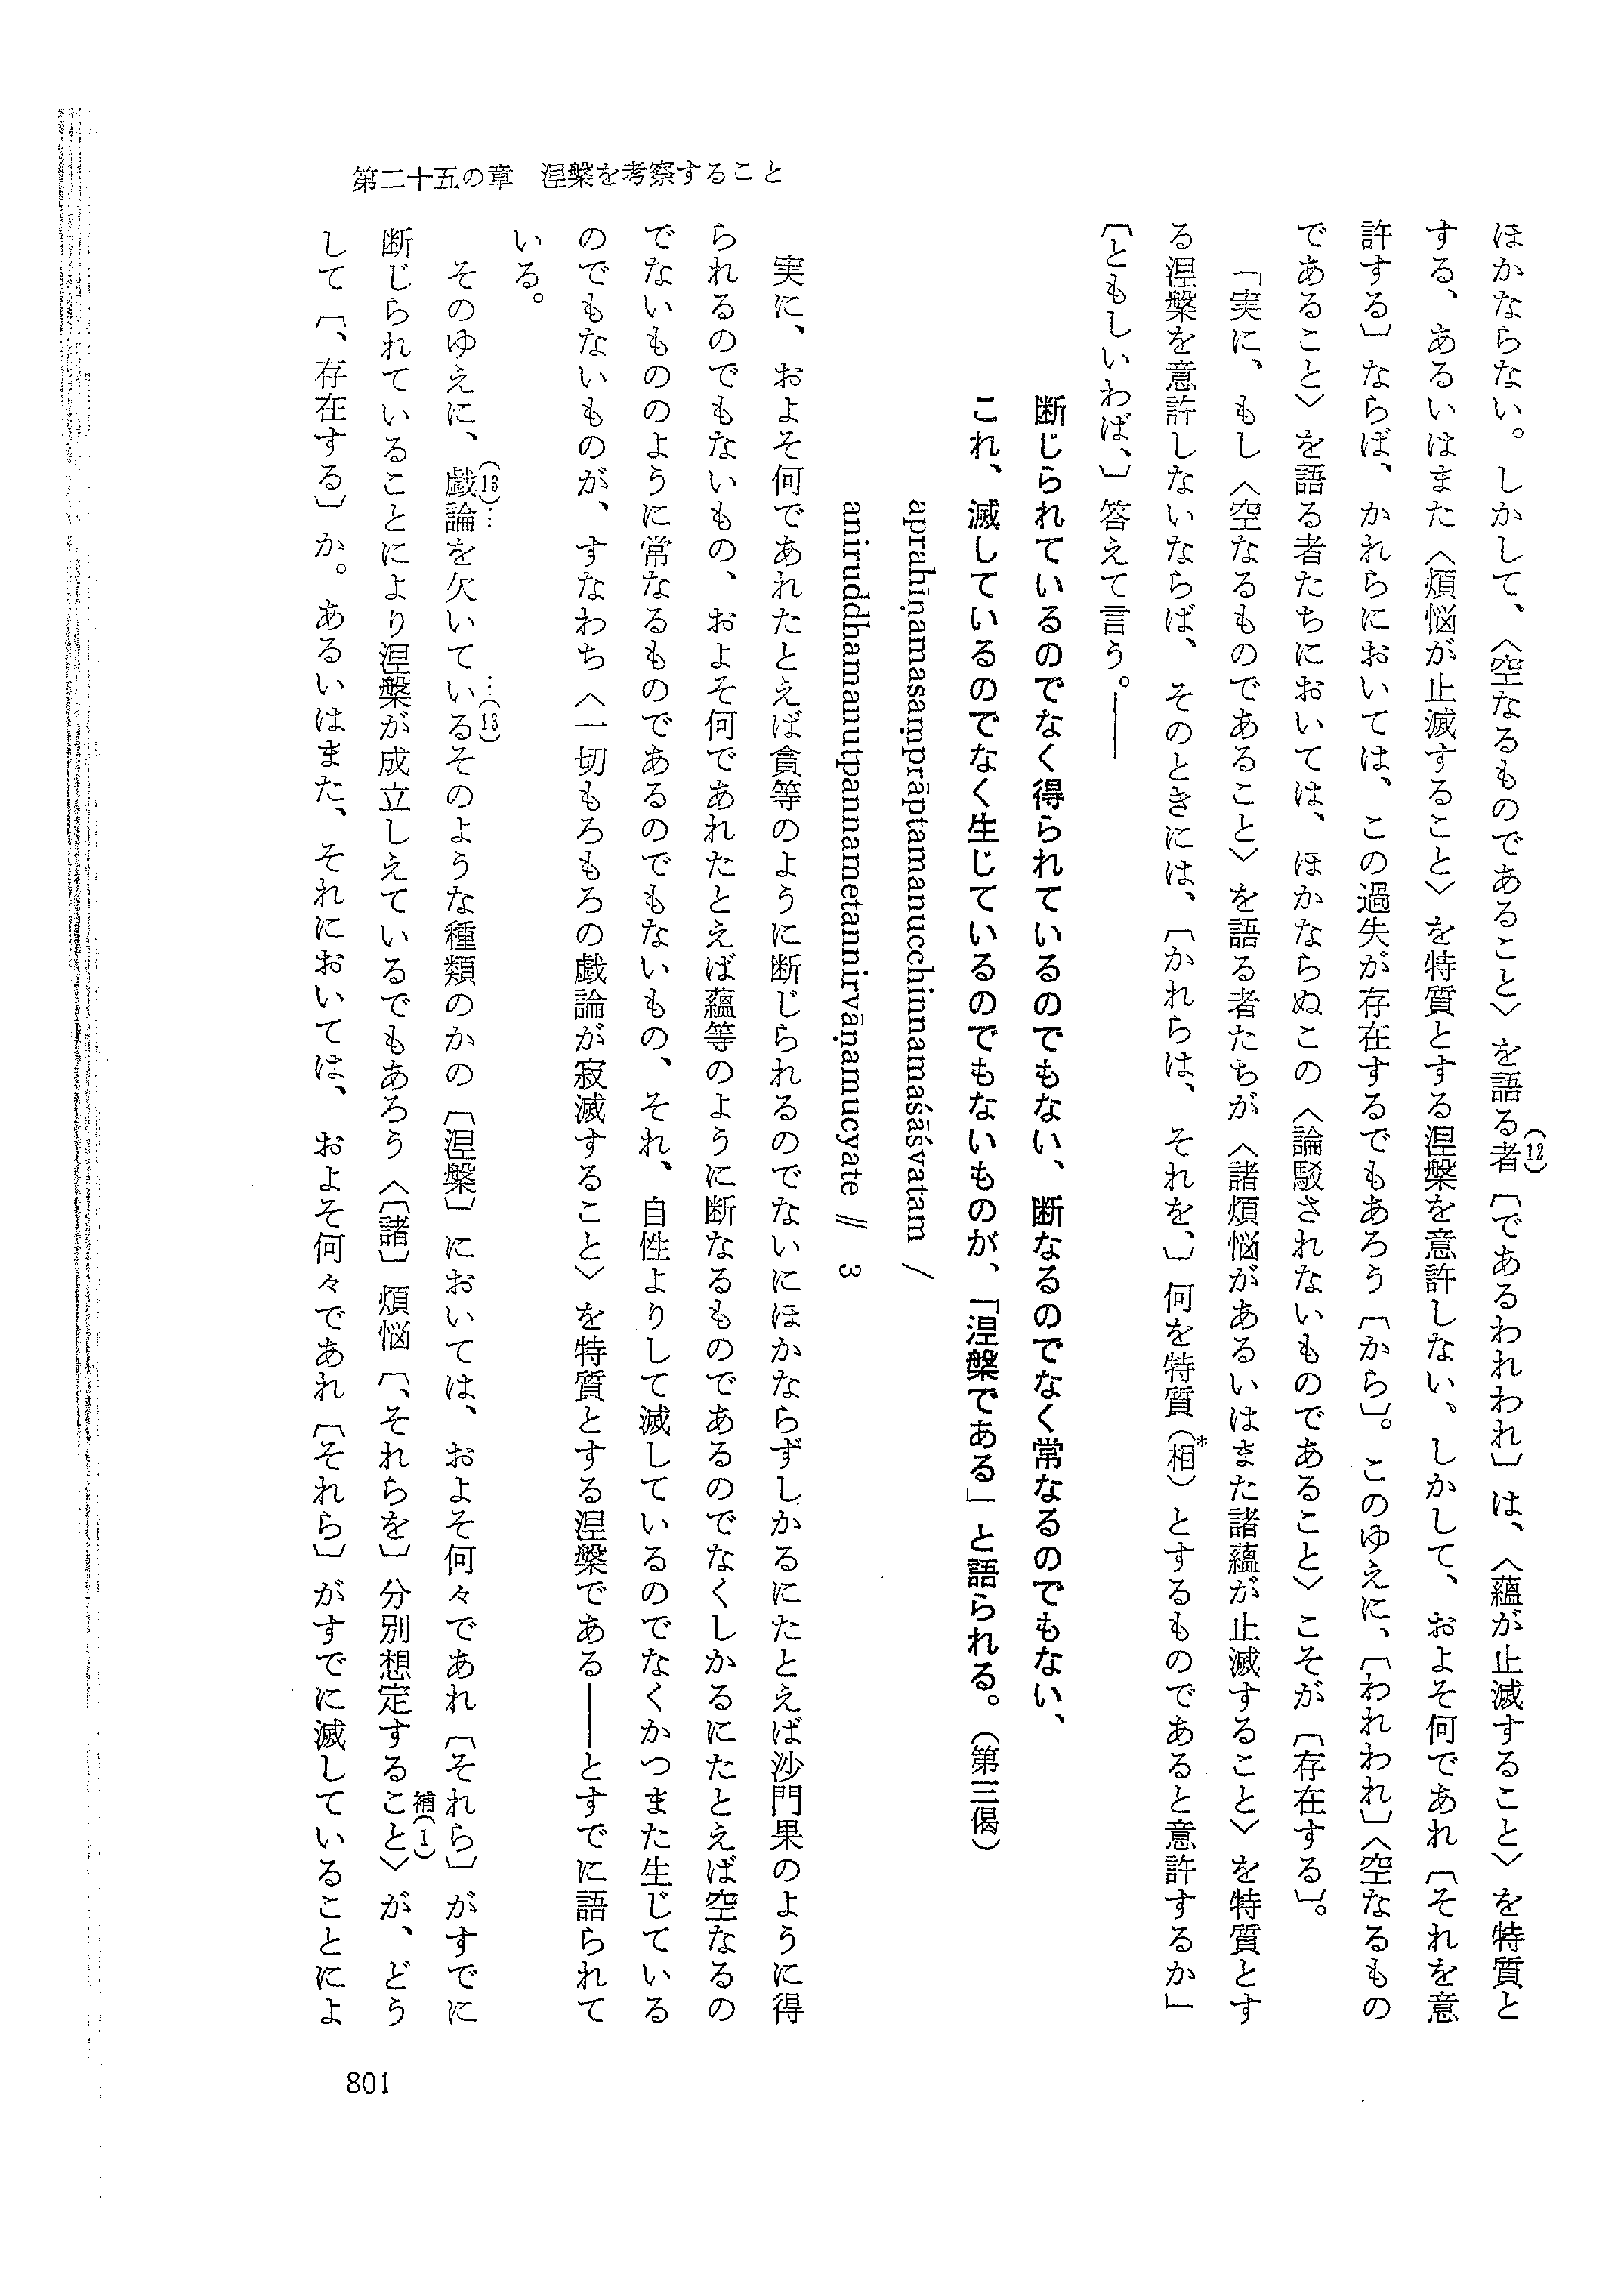 第二十五の章　涅槃を考察すること
ほかならない。しかして、〈空なるものであること〉を語る者(12)〔であるわれわれ〕は、〈蘊が止滅すること〉を特質と
する、あるいはまた〈煩悩が止滅すること〉を特質とする涅槃を意許しない。しかして、およそ何であれ〔それを意
許する〕ならば、かれらにおいては、この過失が存在するでもあろう〔から〕。このゆえに、〔われわれ〕〈空なるもの
であること〉を語る者たちにおいては、ほかならぬこの〈論駁されないものであること〉こそが〔存在する〕。
「実に、もし〈空なるものであること〉を語る者たちが〈諸煩悩があるいはまた諸蘊が止滅すること〉を特質とす
る涅槃を意許しないならば、そのときには、〔かれらは、それを、〕何を特質（相*）とするものであると意許するか」
〔ともしいわば、〕答えて言う。――
断じられているのでなく得られているのでもない、断なるのでなく常なるのでもない、
これ、滅しているのでなく生じているのでもないものが、「涅槃である」と語られる。（第三偈）
aprahīṇamasaṃprāptamanucchinnamaśāśvatam /
aniruddhamanutpannametannirvāṇamucyate // 3
実に、およそ何であれたとえば貪等のように断じられるのでないにほかならずしかるにたとえば沙門果のように得
られるのでもないもの、およそ何であれたとえば蘊等のように断なるものであるのでなくしかるにたとえば空なるの
でないもののように常なるものであるのでもないもの、それ、自性よりして滅しているのでなくかつまた生じている
のでもないものが、すなわち〈一切もろもろの戯論が寂滅すること〉を特質とする涅槃である――とすでに語られて
いる。
そのゆえに、(13)…戯論を欠いている…(13)そのような種類のかの〔涅槃〕においては、およそ何々であれ〔それら〕がすでに
断じられていることにより涅槃が成立しえているでもあろう〈〔諸〕煩悩〔、それらを〕分別想定すること〉補(1)が、どう
して〔、存在する〕か。あるいはまた、それにおいては、およそ何々であれ〔それら〕がすでに滅していることによ
801